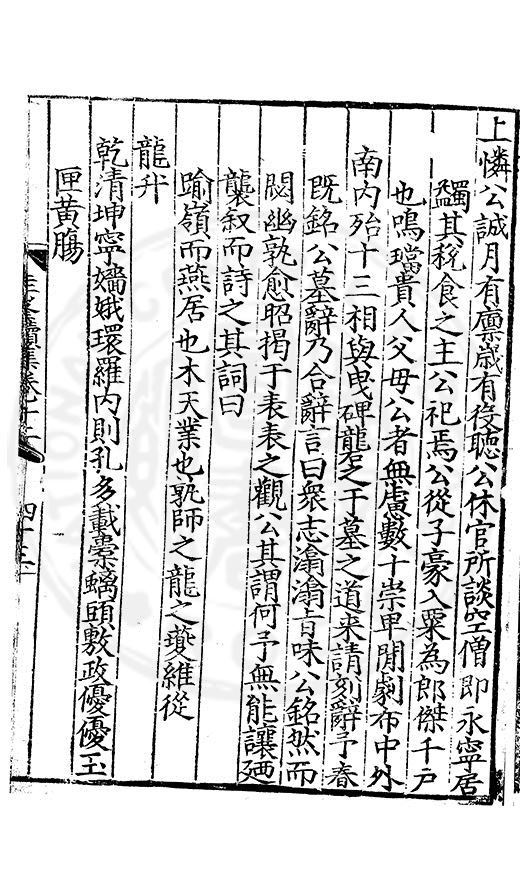 上憐公誠月有廪歳有役聽公休官所談空僧即永寧居
蠲其稅食之主公祀焉公從子豪入粟為郎傑千戸
也鳴璫貴人父毋公者無慮數十崇畢閒劇布中外
南内殆十三相與曳碑龍之于墓之道来請刻辭予春
既銘公墓辭乃合辭言曰衆志潝潝旨味公銘然而
閟幽孰愈昭揭于表表之觀公其謂何予無能讓廼
襲叙而詩之其詞曰
踰嶺而燕居也木天業也孰師之龍之夔維從
龍升
乾清坤寧嬙娥環羅内則孔多載橐螭頭敷政優優玉
匣黄膓
四十三